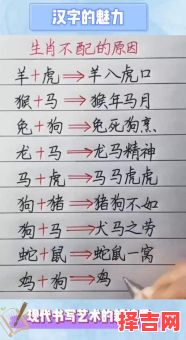 汉字的魅力
生肖不配的原因
羊+虎⇒羊入虎口
猴+马⇒猴年马月
兔+狗⇒兔死狗烹
龙+马⇒龙马精神
马+虎⇒马马虎虎
狗+猪⇒猪狗不如
狗+马⇒犬马之劳
蛇+鼠⇒蛇鼠一窝
鸡+狗⇒鸡
现代书写艺术的
择吉网